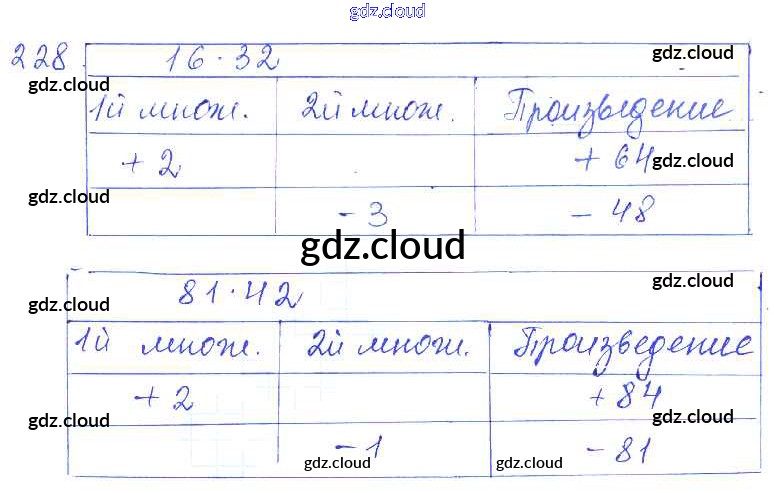 gdz.cloud
228. 16·32 gdz.cloud
gdz.cloud
1й множ. 2й множ. Произведение
+2 +64 gdz.cloud
gdz.cloud
-3 -48
gdz.cloud
81·42 gdz.cloud
gdz.cloud
1й множ. 2й множ. Произведение
+2 +84
gdz.cloud gdz.cloud
-1 -81
gdz.cloud gdz.cloud